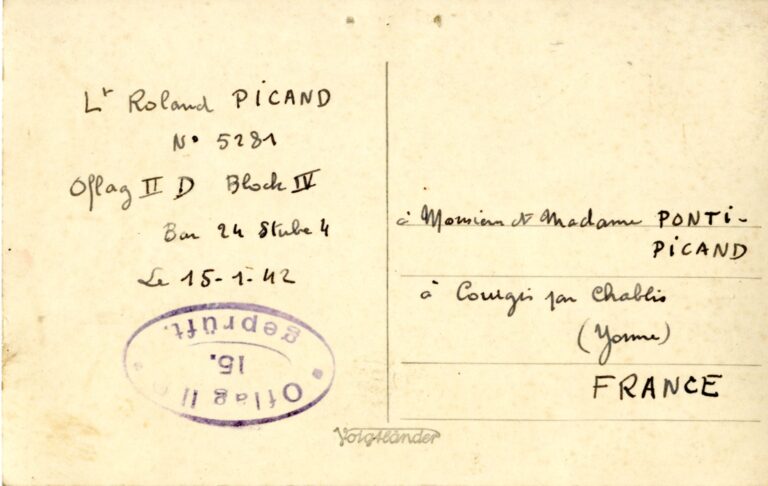 Lt Roland PICAND
N° 5281
Oflag II D Block IV
Bar 24 Stube 4
Le 15-1-42
Oflag II D
15.
geprüft.
Voigtländer
à Monsieur et Madame PONTI-
PICAND
à Courgis par Chablis
(Yonne)
FRANCE